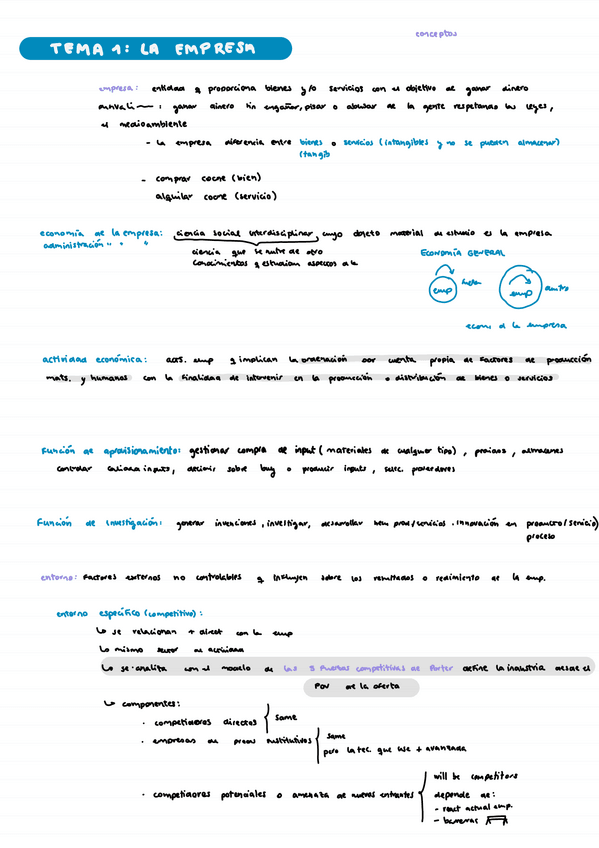 conceptos
TEMA 1: LA EMPRESA
empresa: entidad q proporciona bienes y/o servicios con el objetivo de ganar dinero
: ganar dinero sin engañar, pisar o abusar de la gente respetando las leyes,
el medioambiente
- La empresa diferencia entre bienes o servicios (intangibles y no se pueden almacenar)
(tangib
- comprar coche (bien)
alquilar coche (servicio)
economía de la empresa: ciencia social interdisciplinar, cuyo objeto material de estudio es la empresa
administración " " "
ciencia que se nutre de otro
conocimientos y estudian aspectos de la
ECONOMÍA GENERAL
emp fuera emp dentro
econ de la empresa
actividad económica: acts. emp q implican la ordenación por cuenta propia de factores de producción
mats. y humanos con la finalidad de intervenir en la producción o distribución de bienes o servicios
Función de aprovisionamiento: gestionar compra de input (materiales de cualquier tipo), precios, almacenes
controlar calidad inputs, decidir sobre buy o producir inputs, selec. proveedores
Función de investigación: generar invenciones, investigar, desarrollar new prod/servicios. innovación en producto/servicio)
proceso
entorno: factores externos no controlables q influyen sobre los resultados o redimiento de la emp.
entorno específico (competitivo):
↳ se relacionan + direct con la emp
↳ mismo sector de actividad
↳ se analiza con el modelo de las 5 fuerzas competitivas de Porter define la industria desde el
POV de la oferta
↳ componentes:
· competidores directos { same
· empresas de prods sustitutivos { same
pero la tec. que use + avanzada
will be competitors
· competidores potenciales o amenaza de nuevos entrantes { depende de:
- react actual emp.
- barreras